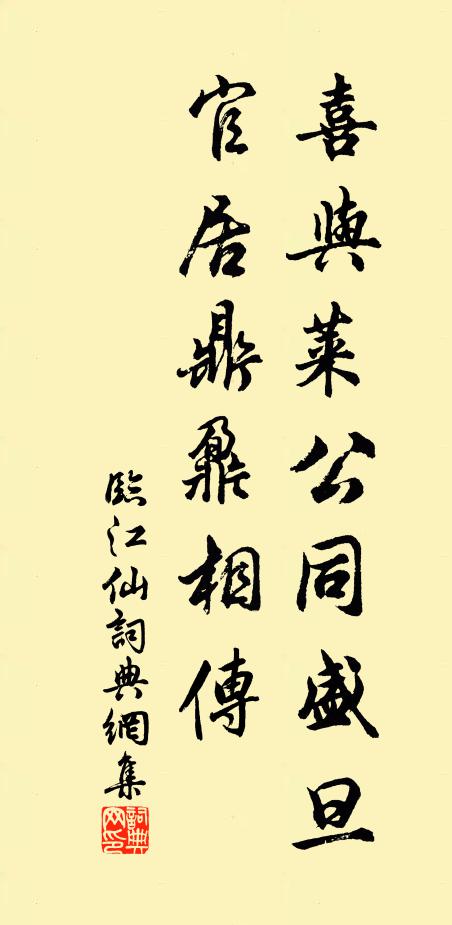 喜與萊公同盛旦
官居鼎鼐相傳
臨江仙詞典網集
詞典网印